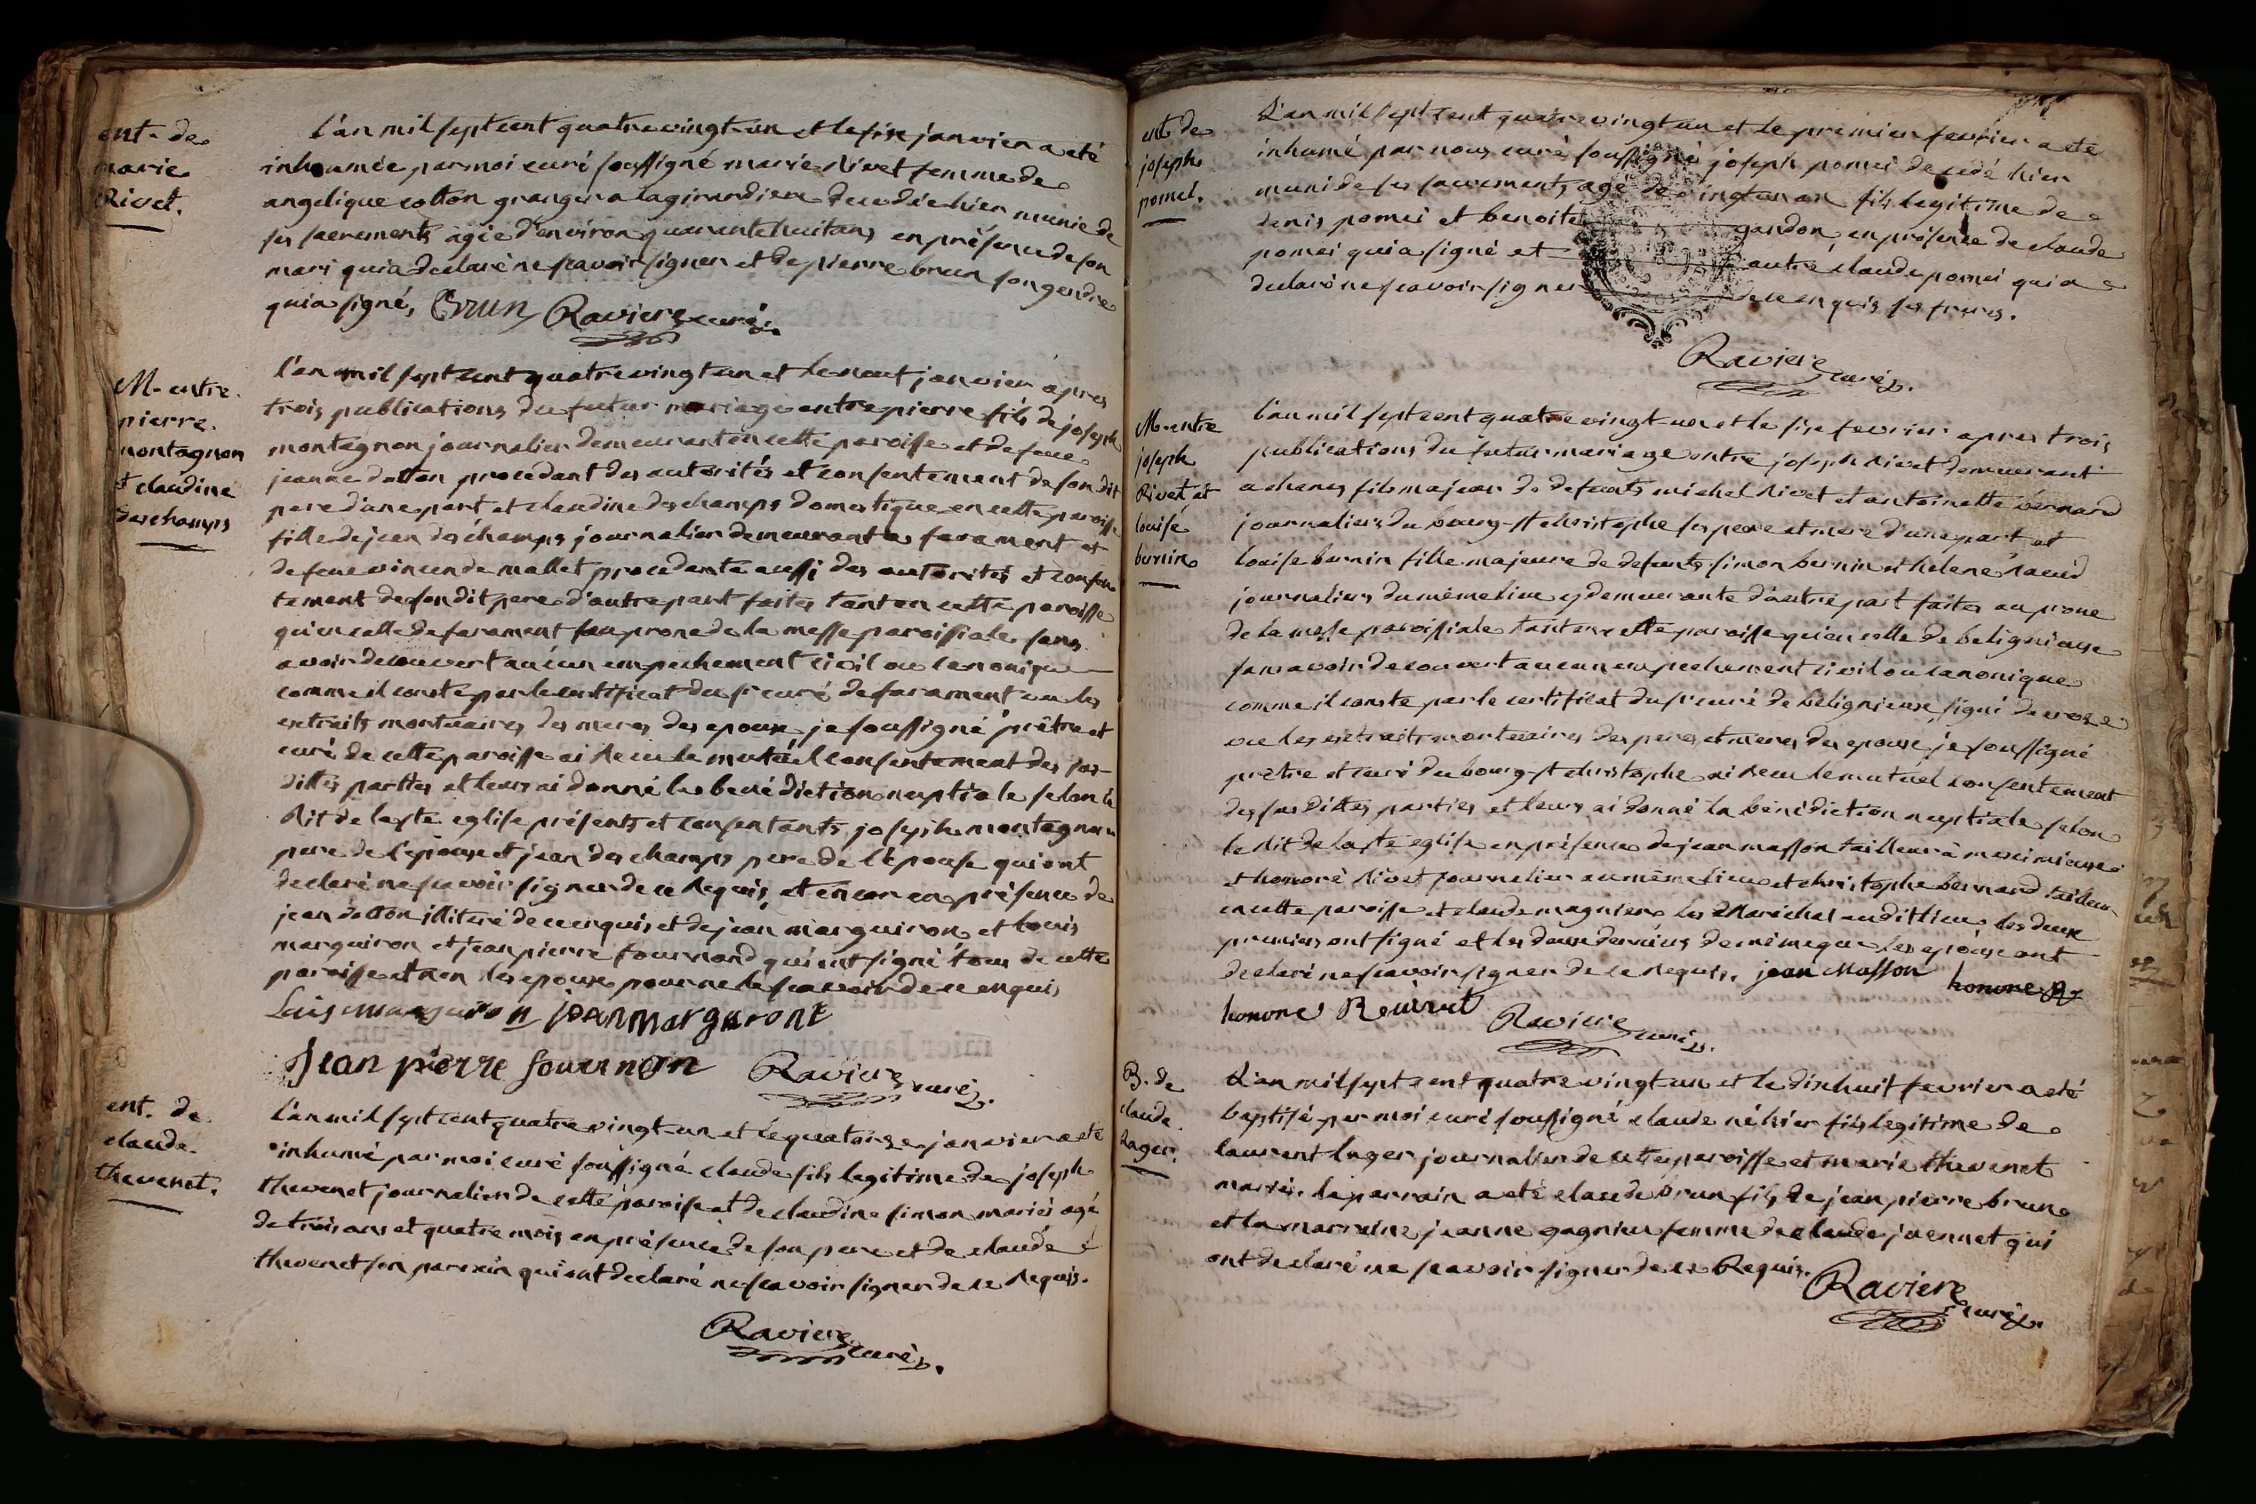 ent. de
marie
Rivet.
l'an mil sept cent quatre vingt-un et le six janvier a eté
inhumée par moi curé soussigné marie Rivet femme de
angelique cotton granger a la girardiere decedée hier munie de
ses sacrements agée d'environ quarante huit ans en présence de son
mari qui a declaré ne scavoir signer et de pierre brun son gendre
qui a signé, Brun Raviere curé.
M. entre
pierre
montagnon
et claudine
deschamps
l'an mil sept cent quatre vingt un et le neuf janvier après
trois publications du futur mariage entre pierre fils de joseph
montagnon journalier demeurant en cette paroisse et de feue
jeanne dutton procedant des autorités et consentement de son dit
pere d'une part et claudine deschamps domestique en cette paroisse
fille de jean deschamps journalier demeurant a farament et
de feue vincende mallet procedante aussi des autorités et consen
tement de son dit pere d'autre part faites tant en cette paroisse
qu'en celle de farament au prone de la messe paroissiale sans
avoir decouvert aucun empechement civil ou canonique
comme il conste par le certificat du sr curé de farament vu les
extraits mortuaires des meres des epoux je soussigné prêtre et
curé de cette paroisse ai recu le mutuel consentement des sus-
dittes parties et leurs ai donné la benédiction nuptiale selon le
Rit de la ste eglise présents et consentants joseph montagnon
pere de l'epoux et jean deschamps pere de l'épouse qui ont
declaré ne scavoir signer de ce Requis, et encore en présence de
jean dutton illiteré de ce enquis et de jean marguiron et louis
marguiron et jean pierre fournand qui ont signé tous de cette
paroisse et non les epoux pour ne le scavoir de ce enquis
Luis marguiron jean marguront
Jean pierre fournon Raviere curé.
ent. de
claude
thevenet.
l'an mil sept cent quatre vingt-un et le quatorze janvier a eté
inhumé par moi curé soussigné claude fils legitime de joseph
thevenet journalier de cette paroisse et de claudine simon mariés agé
de trois ans et quatre mois en présence de son pere et de claude
thevenet son parrain qui ont declaré ne scavoir signer de ce Requis.
Raviere curé.
ent. de
joseph
pomei.
L'an mil sept cent quatre vingt un et le premier fevrier a eté
inhumé par nous curé soussigné joseph pomei decedé hier
muni de ses sacrements agé de vingt un an fils legitime de
denis pomei et benoite gandon, en présence de claude
pomei qui a signé et autre claude pomei qui a
declaré ne scavoir signer de ce enquis ses freres.
Raviere curé.
M. entre
joseph
Rivet et
louise
burnin
l'an mil sept cent quatre vingt-un et le six fevrier apres trois
publications du futur mariage entre joseph Rivet demeurant
a chanes fils majeur de defunts michel Rivet et antoinette bernard
journaliers du bourg-st christophe ses pere et mere d'une part et
louise burnin fille majeure de defunts simon burnin et helene naeud
journaliers du même lieu y demeurante d'autre part faites au prone
de la messe paroissiale tant en cette paroisse qu'en celle de belignieux
sans avoir decouvert aucun empechement civil ou canonique
comme il conste par le certificat du sr curé de béligneux signé
vu les extraits mortuaires des peres et meres des epoux je soussigné
prêtre et curé du bourg-st christophe ai Recu le mutuel consentement
des sus dittes parties et leurs ai donné la bénédiction nuptiale selon
le Rit de la ste eglise en présence de jean masson tailleur à meximieux
et honoré Rivet journalier au même lieu et christophe bernard tailleur
en cette paroisse et claude magnien le Maréchal au dit lieu les deux
premiers ont signé et les deux derniers de même que les epoux ont
declaré ne scavoir signer de ce Requis. jean Masson honore R
honore Reuivet Raviere curé.
B. de
claude
Lager.
L'an mil sept cent quatre vingt-un et le dixhuit fevrier a eté
baptisé par moi curé soussigné claude né hier fils legitime de
laurent lager journalier de cette paroisse et marie thevenet
mariés. le parrain a eté claude brun fils de jean pierre brun
et la marraine jeanne gagnieu femme de claude juennet qui
ont declaré ne scavoir signer de ce Requis.
Raviere curé.